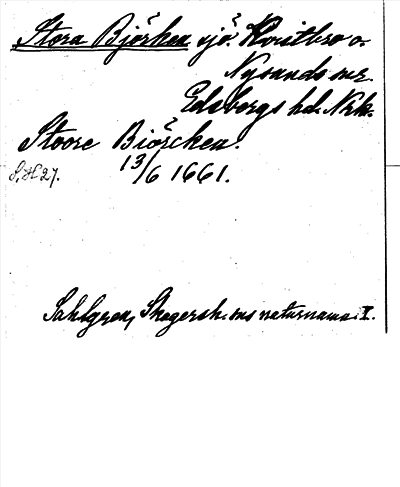 Stora Björken sjö. Kvistbro o.
Nysunds snr.
Edsbergs hd. Nrk.
Stoore Biörcken.
13/6 1661.
S, H 27.
Sahlgren, Skagersh. sns naturnamn. I.